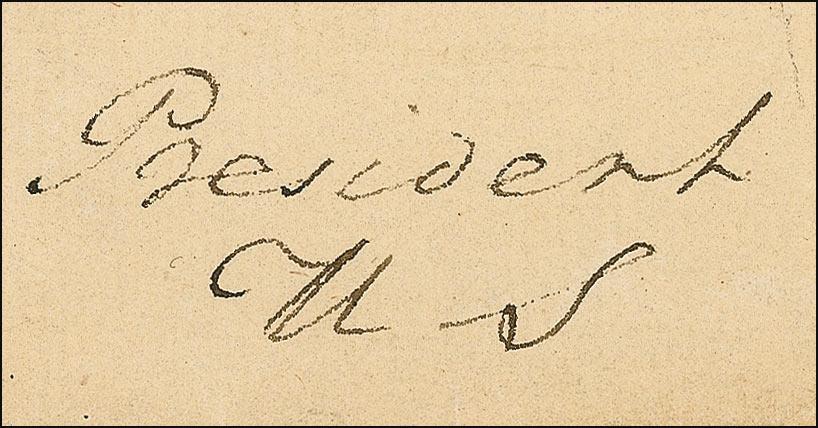 President
U S